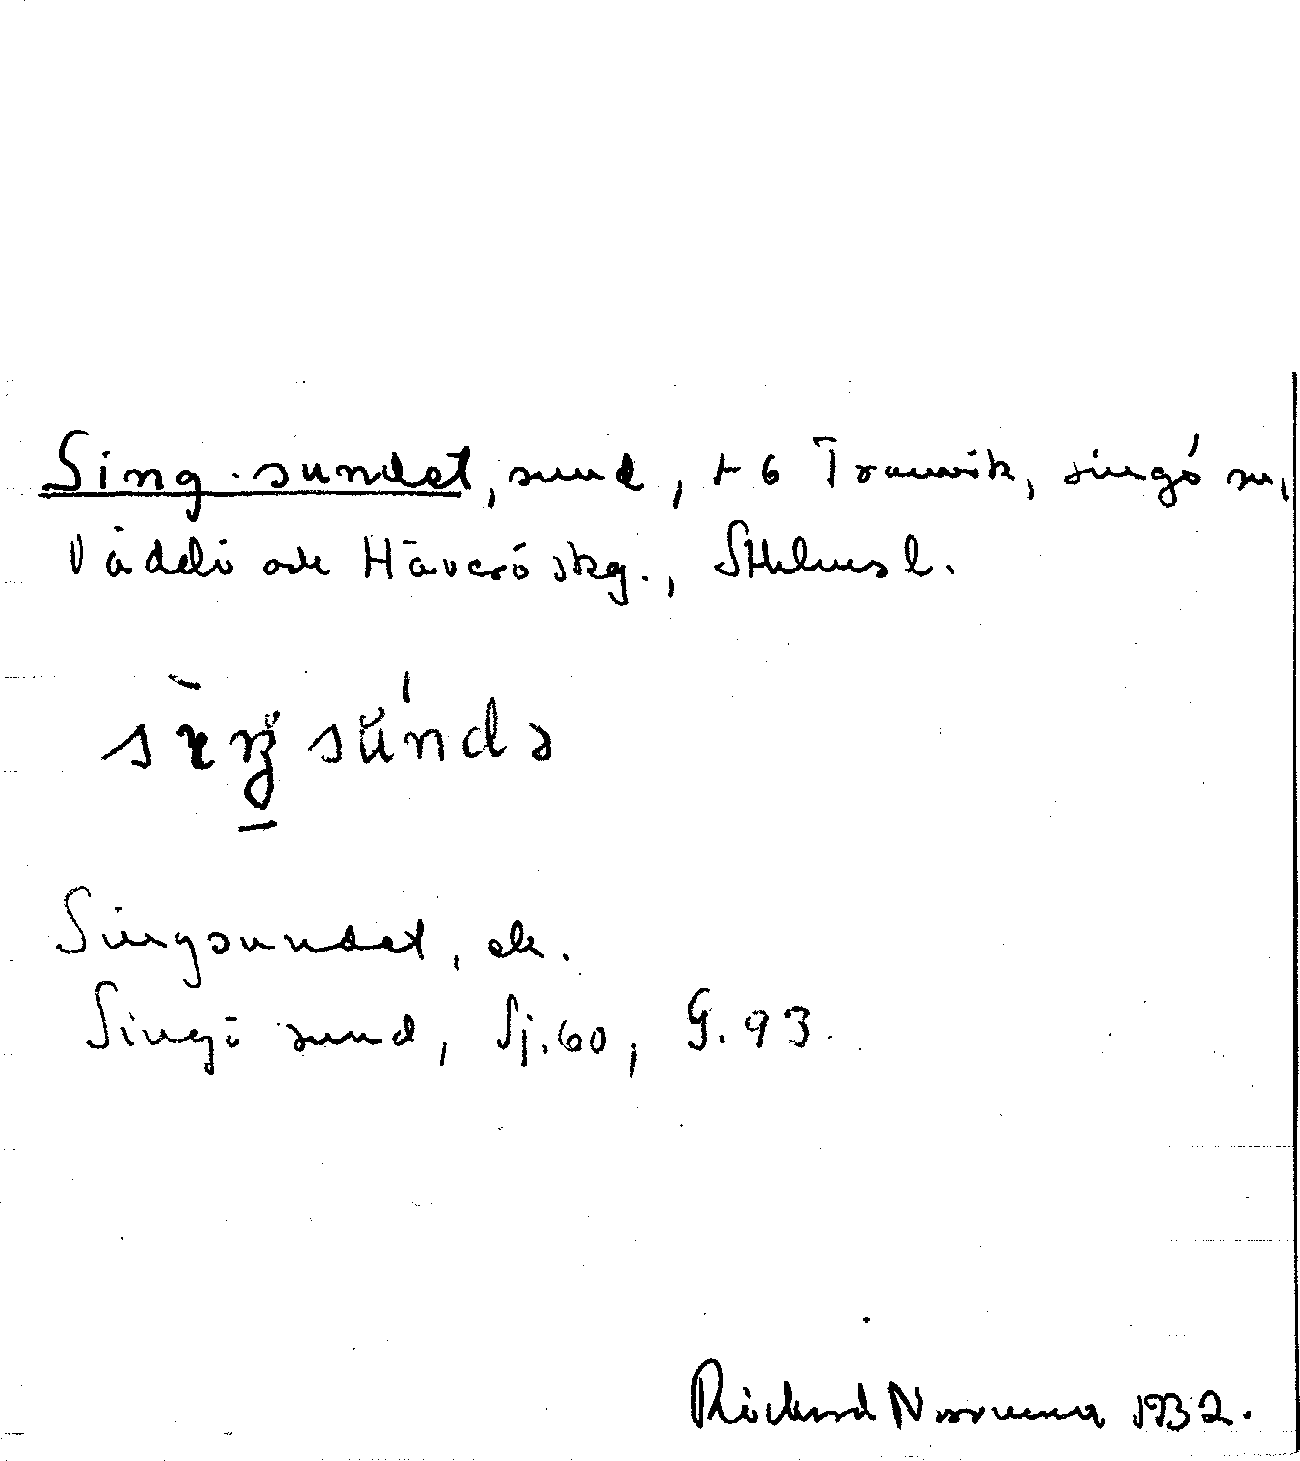 Sing-sundet, sund, t 6 Tranvik, Singö sn,
Väddö och Häverö skg., Sthlms l.
Singsundet, ek.
Singö sund, Sj. 60, G. 93.
Rickard Norrman 1932.